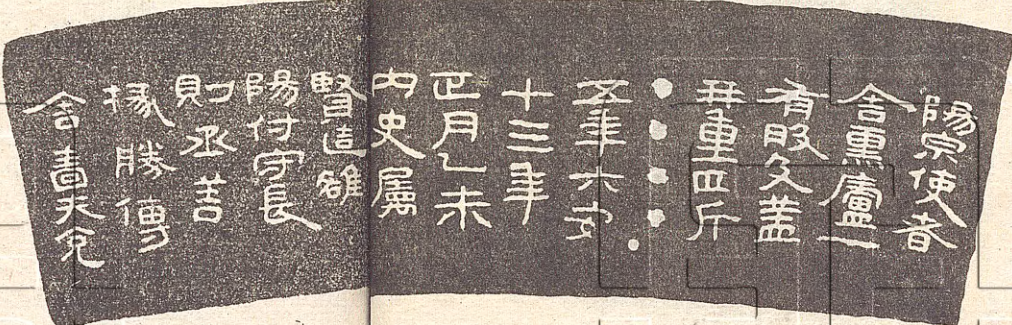 陽泉使者
舍熏盧一
有般及蓋
并重四斤
五年六安
十三年
正月乙未
內史屬
賢造雒
陽付守長
則丞善
掾勝傳
舍嗇夫兌